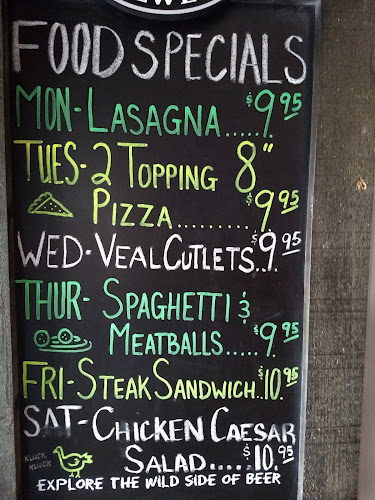 FOOD SPECIALS
MON-LASAGNA.....$9.95
TUES-2 TOPPING 8"
PIZZA.........$9.95
WED-VEAL CUTLETS..$9.95
THUR-SPAGHETTI &
MEATBALLS.....$9.95
FRI-STEAK SANDWICH..$10.95
SAT-CHICKEN CAESAR
KLUCK
KLUCK
SALAD.....$10.95
EXPLORE THE WILD SIDE OF BEER